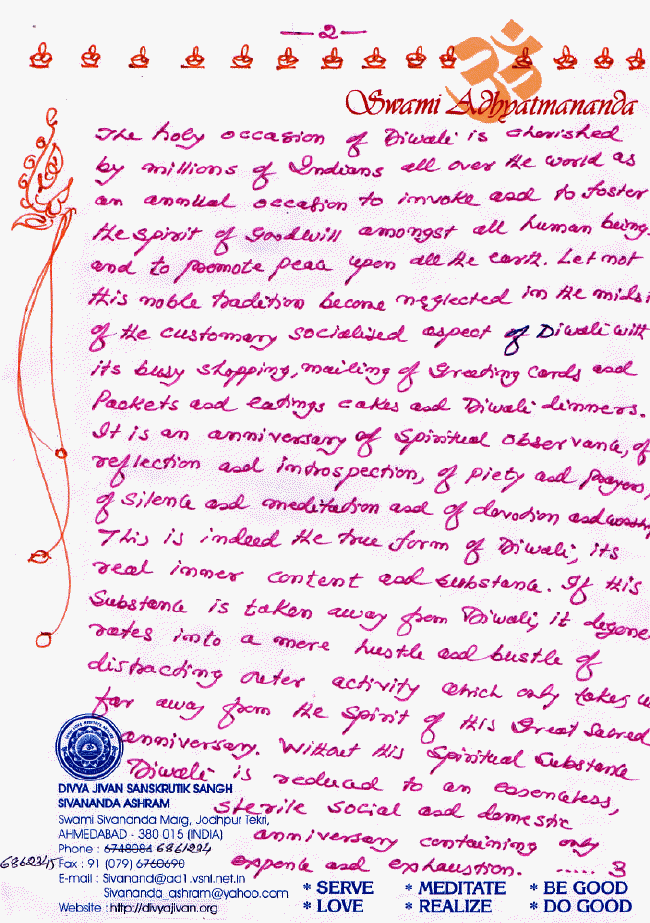 — 2 —
ॐ
Swami Adhyatmananda
The holy occasion of Diwali is cherished
by millions of Indians all over the world as
an annual occasion to invoke and to foster
the spirit of Goodwill amongst all human beings
and to promote peace upon all the earth. Let not
this noble tradition become neglected in the midst
of the customary socialised aspect of Diwali with
its busy shopping, mailing of Greeting Cards and
Packets and eatings cakes and Diwali dinners.
It is an anniversary of Spiritual observance, of
reflection and introspection, of piety and prayers,
of silence and meditation and of devotion and worship
This is indeed the true form of Diwali, its
real inner content and substance. If this
Substance is taken away from Diwali, it degene
rates into a mere hustle and bustle of
distracting outer activity which only takes u
far away from the Spirit of this Great Sacred
anniversary. Without this Spiritual Substance
Diwali is reduced to an essenceless,
sterile social and domestic
anniversary containing only
expense and exhaustion. ..... 3
DIVYA JIVAN SANSKRUTIK SANGH
SIVANANDA ASHRAM
Swami Sivananda Marg, Jodhpur Tekri,
AHMEDABAD - 380 015 (INDIA)
Phone : 6748084 6861234
6862345 Fax : 91 (079) 6760690
E-mail : Sivanand@ad1.vsnl.net.in
Sivananda_ashram@yahoo.com
Website : http://divyajivan.org
* SERVE * MEDITATE * BE GOOD
* LOVE * REALIZE * DO GOOD